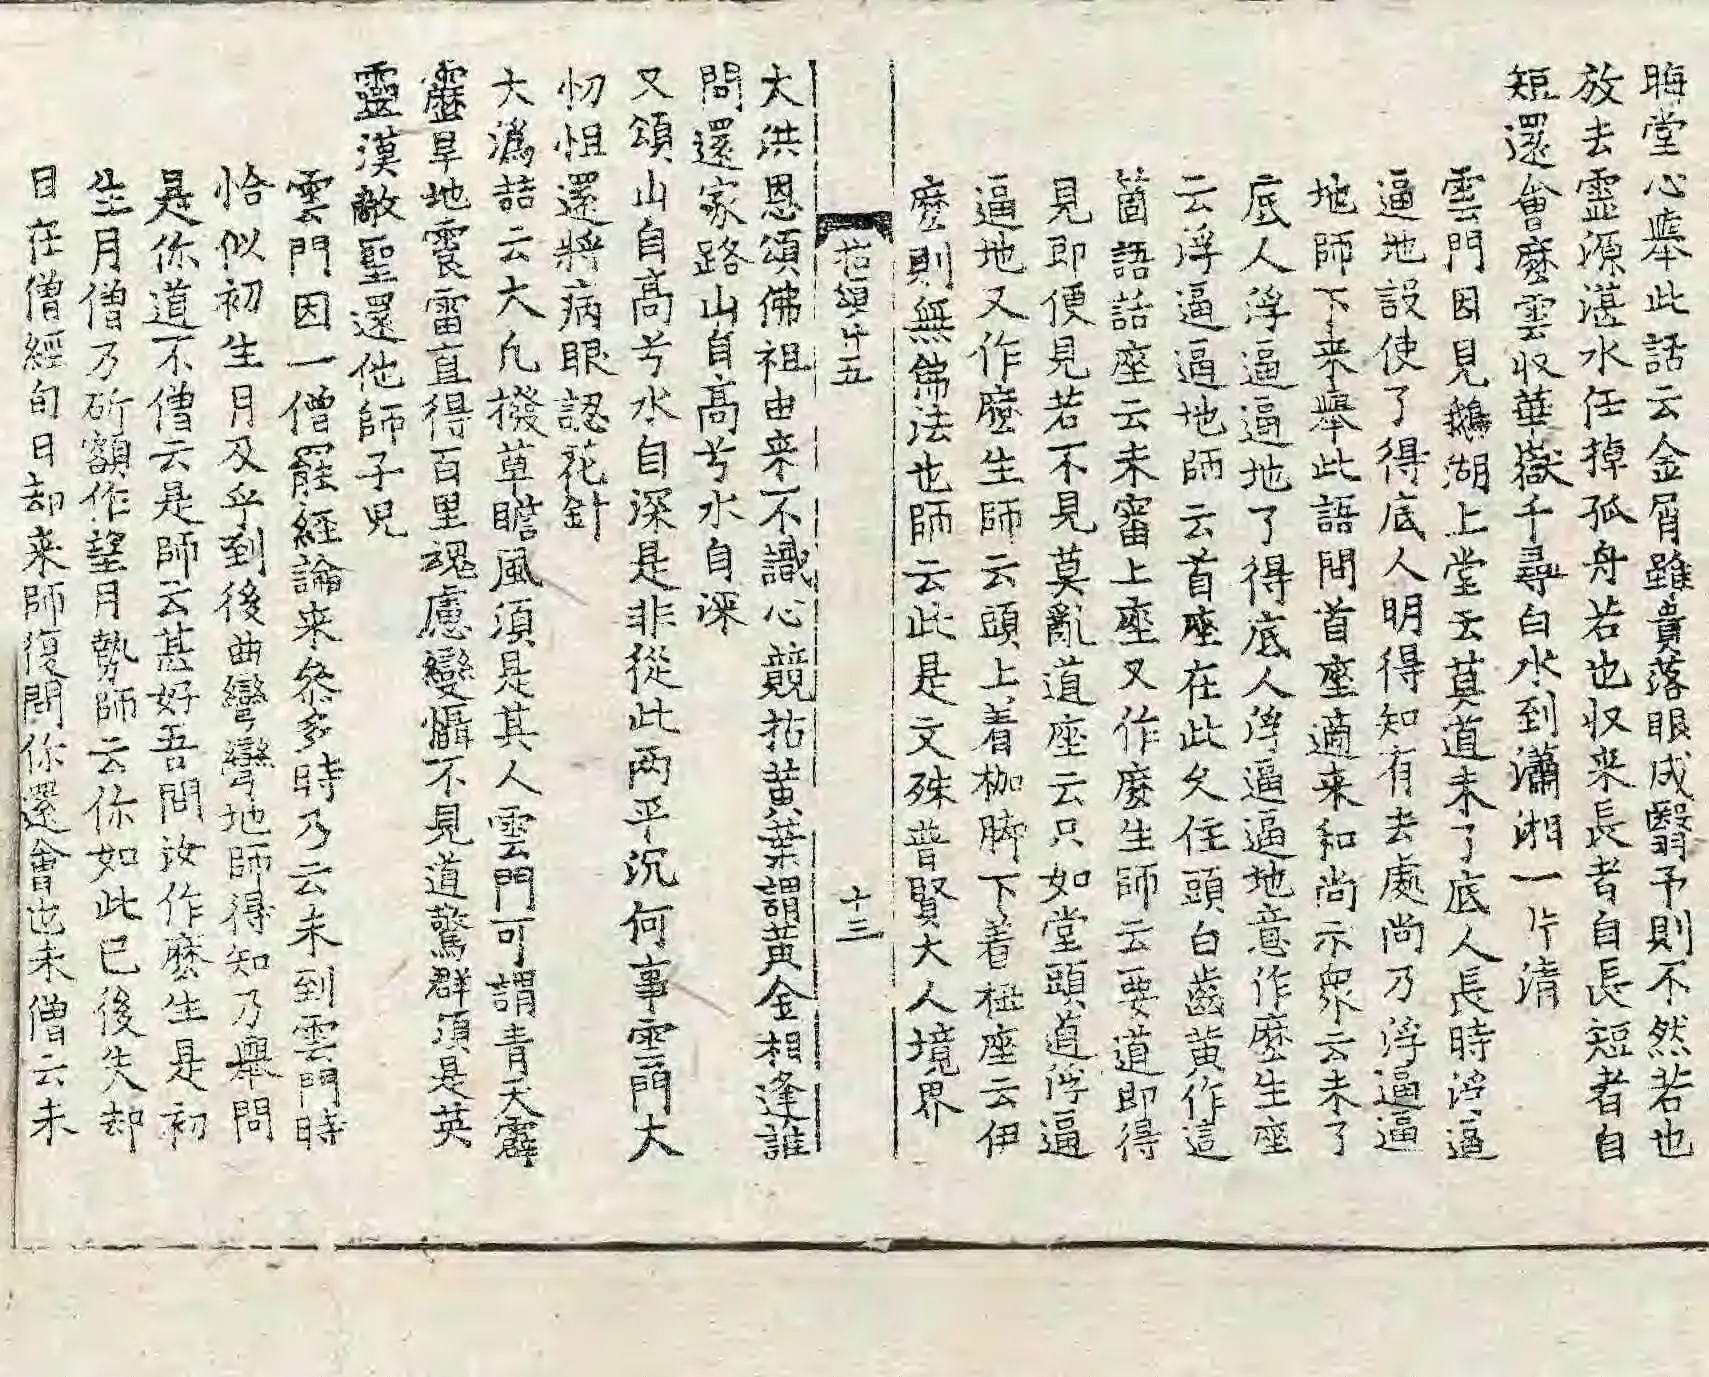 晦堂心舉此話云金屑雖貴落眼成翳予則不然若也
放去靈源湛水任掉孤舟若也収来長者自長短者自
短還會麼雲収華嶽千尋白水到瀟湘一片清
雲門因見鵝湖上堂云莫道未了底人長時浮逼
逼地設使了得底人明得知有去處尚乃浮逼逼
地師下来舉此語問首座適来和尚示衆云未了
底人浮逼逼地了得底人浮逼逼地意作麼生座
云浮逼逼地師云首座在此久住頭白齒黄作這
箇語話座云未審上座又作麼生師云要道即得
見即便見若不見莫亂道座云只如堂頭道浮逼
逼地又作麼生師云頭上着枷脚下着杻座云伊
麼則無佛法也師云此是文殊普賢大人境界
拈頌卄五
十三
大洪恩頌佛祖由来不識心競拈黄葉謂黄金相逢誰
問還家路山自高兮水自深
又頌山自高兮水自深是非從此两平沉何事雲門大
忉怛還將病眼認花針
大潙喆云大凡撥草瞻風須是其人雲門可謂青天霹
靂旱地震雷直得百里魂慮變懾不見道驚群須是英
靈漢敵聖還他師子児
雲門因一僧罷經論来叅多時乃云未到雲門時
恰似初生月及乎到後曲彎彎地師得知乃舉問
是你道不僧云是師云甚好吾問汝作麼生是初
生月僧乃斫額作望月勢師云你如此已後失却
目在僧經旬日却来師復問你還會也未僧云未